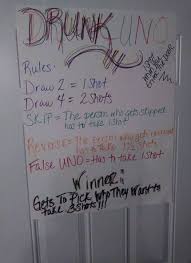 DRUNK UNO
Rules:
Draw 2 = 1 Shot
Draw 4 = 2 Shots
SKIP = The person who gets skipped
has to take 1 Shot
Reverse = The person who gets reversed
has to take 1½ Shots
False UNO = Has to take 1 Shot
Winner:
Gets To Pick Who They Want to
take 3 Shots!!!